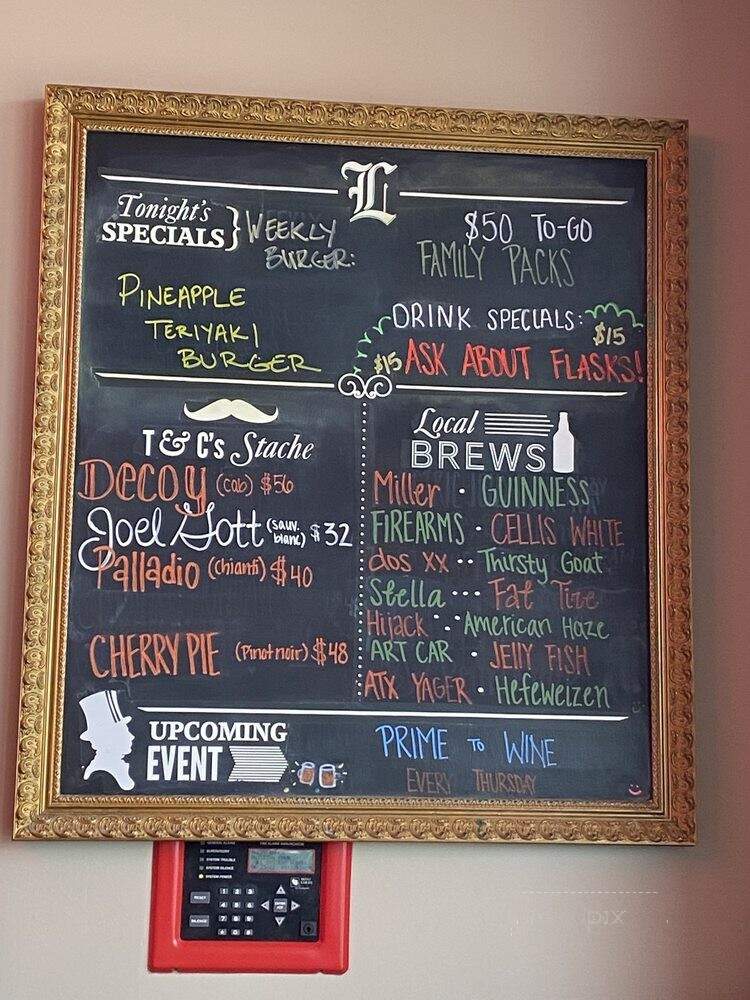 L
Tonight's
SPECIALS } WEEKLY
BURGER:
PINEAPPLE
TERIYAKI
BURGER
$50 TO-GO
FAMILY PACKS
DRINK SPECIALS:
$15
$15 ASK ABOUT FLASKS!
T & C's Stache
Decoy (cab) $56
Joel Gott (sauv. blanc) $32
Palladio (chianti) $40
CHERRY PIE (Pinot noir) $48
Local
BREWS
Miller · GUINNESS
FIREARMS · CELLIS WHITE
dos XX ·· Thirsty Goat
Stella ··· Fat Tire
Hijack ··· American Haze
ART CAR · JELLY FISH
ATX YAGER · Hefeweizen
UPCOMING
EVENT
PRIME TO WINE
EVERY THURSDAY
RESET
SILENCE
1 2 3
4 5 6
7 8 9
0
pix